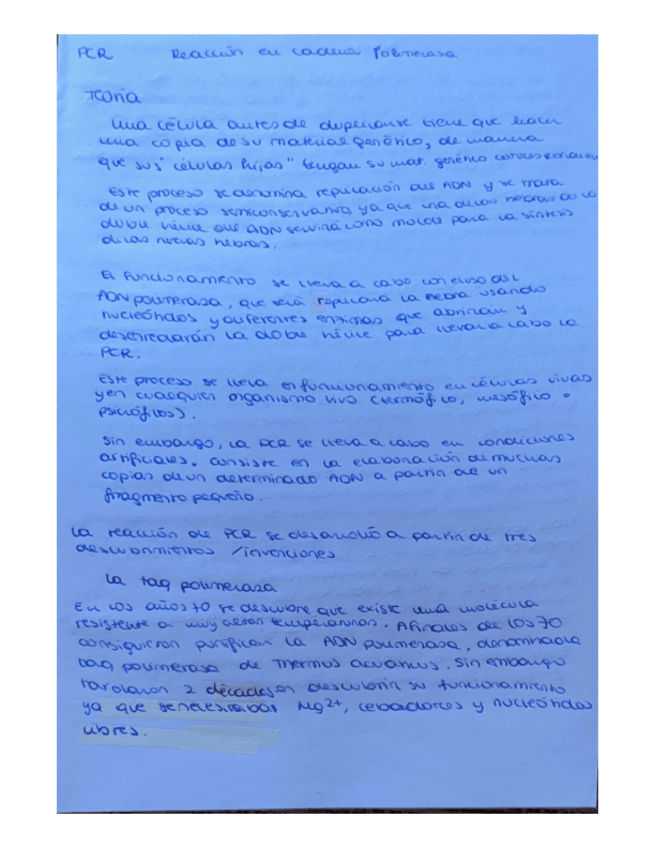 PCR Reacción en cadena Polimerasa
Teoría
Una célula antes de duplicarse tiene que hacer
una copia de su material genético, de manera
que sus "células hijas" tengan su mat. genético correspondiente
Este proceso se denomina replicación del ADN y se trata
de un proceso semiconservativo, ya que una de las hebras de la
doble hélice del ADN servirá como molde para la síntesis
de las nuevas hebras.
El funcionamiento se lleva a cabo con el uso del
ADN polimerasa, que será replicará la hebra usando
nucleótidos y diferentes enzimas que abrirán y
desenredarán la doble hélice para llevar a cabo la
PCR.
Este proceso se lleva en funcionamiento en células vivas
y en cualquier organismo vivo (termófilo, mesófilo o
psicrófilos).
Sin embargo, la PCR se lleva a cabo en condiciones
artificiales. Consiste en la elaboración de muchas
copias de un determinado ADN a partir de un
fragmento pequeño.
La reacción de PCR se desarrolló a partir de tres
descubrimientos / invenciones
La taq polimerasa
En los años 70 se descubre que existe una molécula
resistente a muy altas temperaturas. A finales de los 70
consiguieron purificar la ADN polimerasa, denominada
taq polimerasa de Thermus acuaticus. Sin embargo
tardaron 2 décadas en descubrir su funcionamiento
ya que se necesitaban Mg2+, cebadores y nucleótidos
libres.